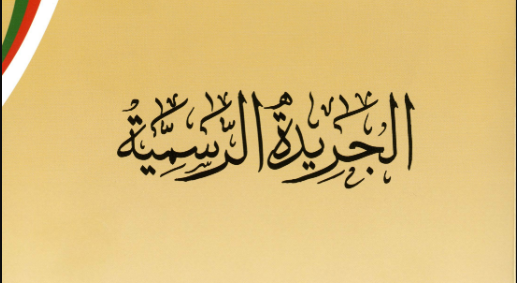 الجَرِيدةُ الرَّسمِيَّة